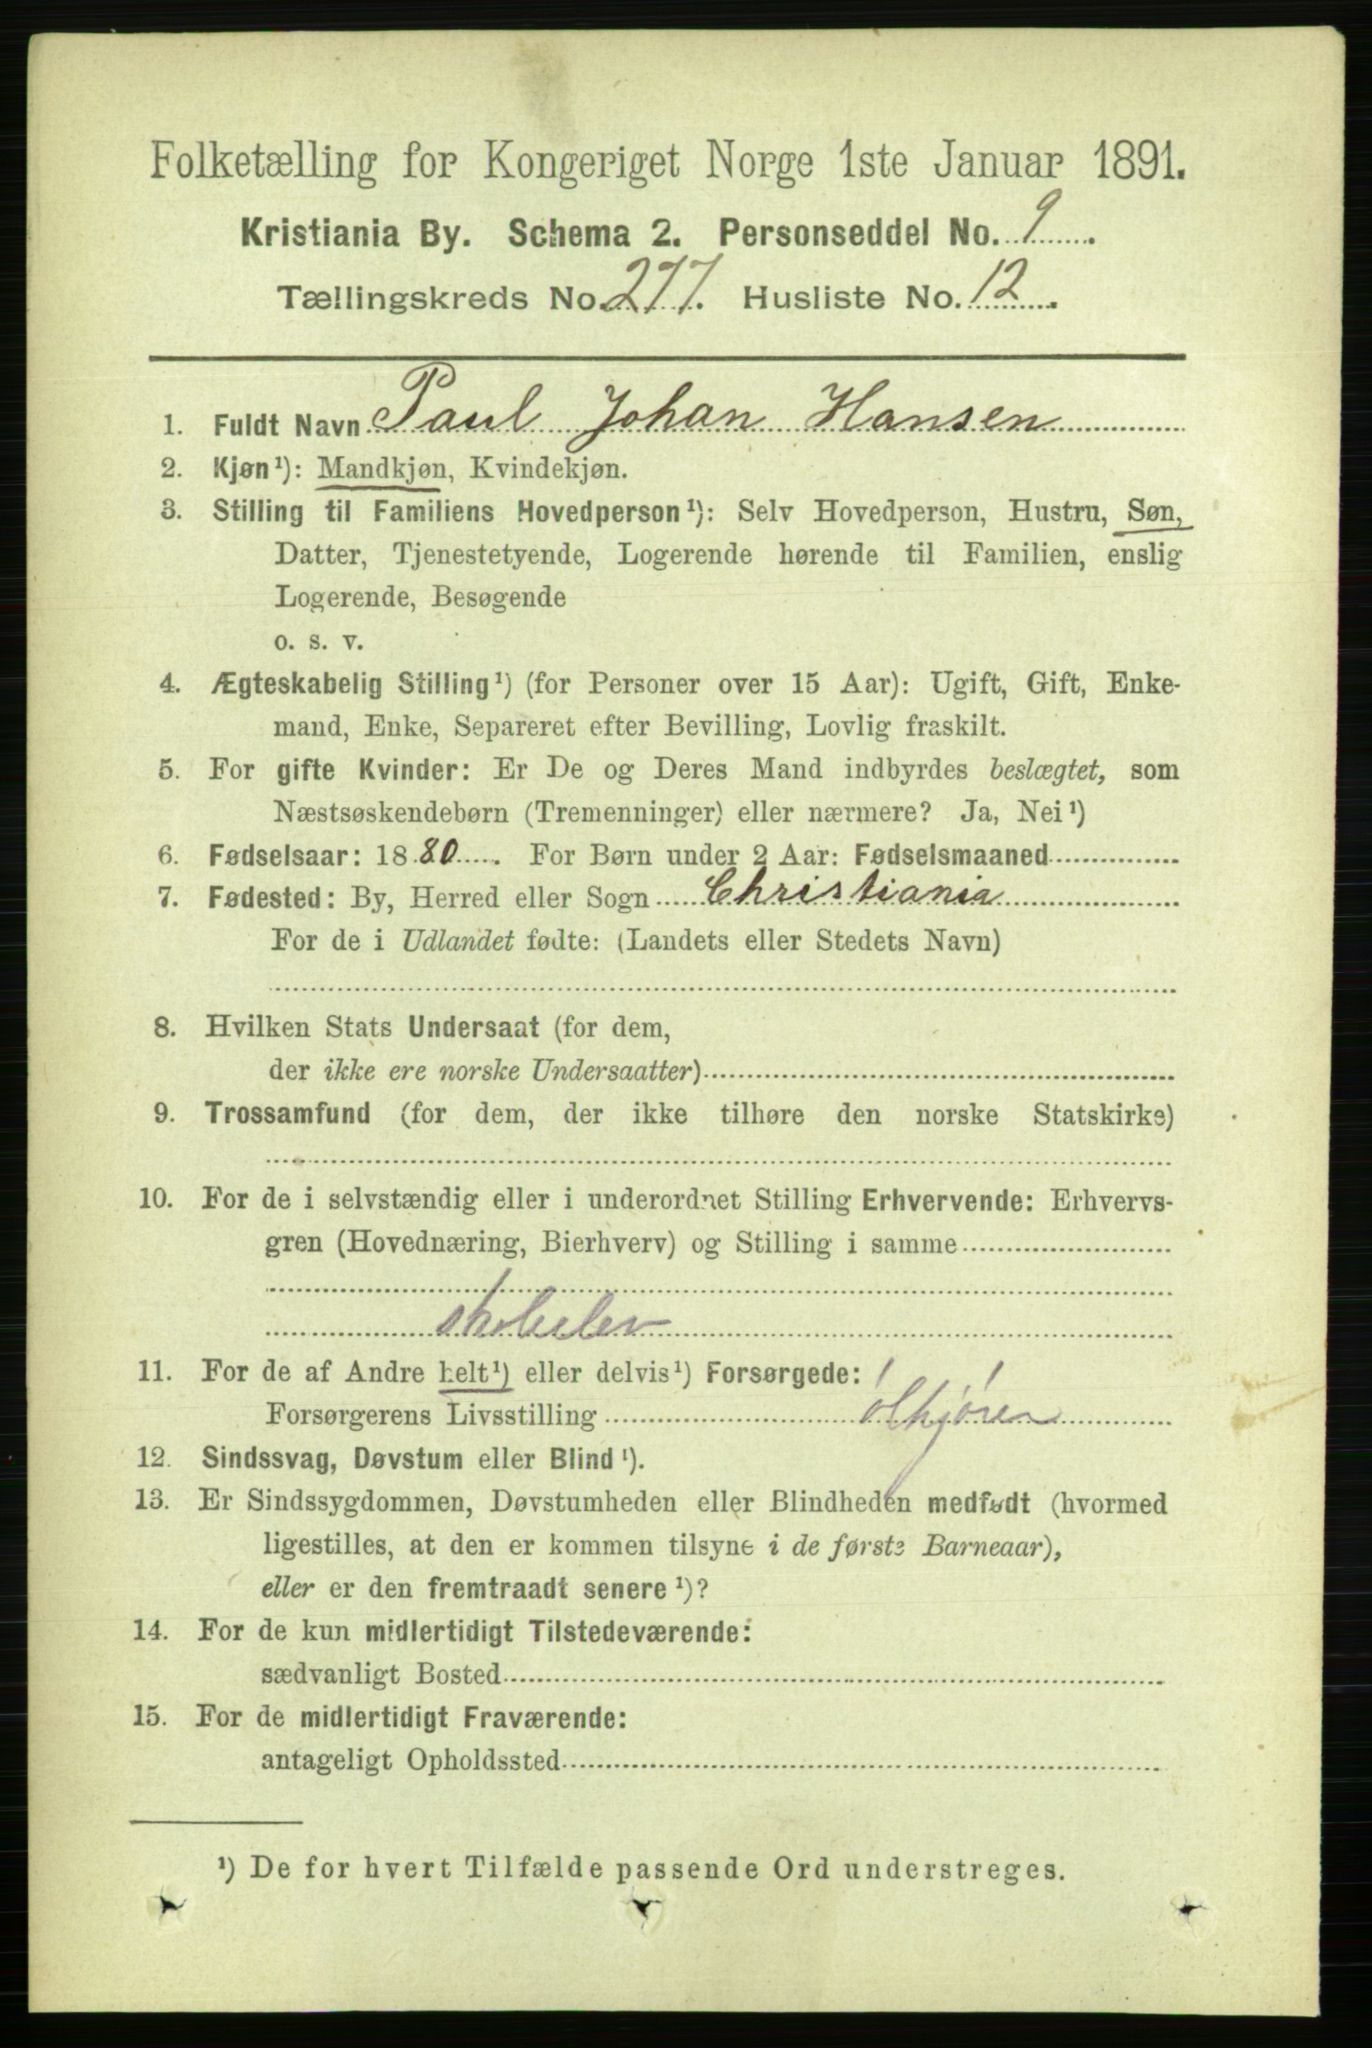 Folketælling for Kongeriget Norge 1ste Januar 1891.
Kristiania By. Schema 2. Personseddel No. 9.
Tællingskreds No. 277. Husliste No. 12.
1. Fuldt Navn Paul Johan Hansen
2. Kjøn¹): Mandkjøn, Kvindekjøn.
3. Stilling til Familiens Hovedperson¹): Selv Hovedperson, Hustru, Søn,
Datter, Tjenestetyende, Logerende hørende til Familien, enslig
Logerende, Besøgende
o. s. v.
4. Ægteskabelig Stilling¹) (for Personer over 15 Aar): Ugift, Gift, Enke-
mand, Enke, Separeret efter Bevilling, Lovlig fraskilt.
5. For gifte Kvinder: Er De og Deres Mand indbyrdes beslægtet, som
Næstsøskendebørn (Tremenninger) eller nærmere? Ja, Nei¹)
6. Fødselsaar: 1880. For Børn under 2 Aar: Fødselsmaaned
7. Fødested: By, Herred eller Sogn Christiania
For de i Udlandet fødte: (Landets eller Stedets Navn)
8. Hvilken Stats Undersaat (for dem,
der ikke ere norske Undersaatter)
9. Trossamfund (for dem, der ikke tilhøre den norske Statskirke)
10. For de i selvstændig eller i underordnet Stilling Erhvervende: Erhvervs-
gren (Hovednæring, Bierhverv) og Stilling i samme
skolelev
11. For de af Andre helt¹) eller delvis¹) Forsørgede:
Forsørgerens Livsstilling ølkjører
12. Sindssvag, Døvstum eller Blind¹).
13. Er Sindssygdommen, Døvstumheden eller Blindheden medfødt (hvormed
ligestilles, at den er kommen tilsyne i de første Barneaar),
eller er den fremtraadt senere¹)?
14. For de kun midlertidigt Tilstedeværende:
sædvanligt Bosted
15. For de midlertidigt Fraværende:
antageligt Opholdssted
¹) De for hvert Tilfælde passende Ord understreges.